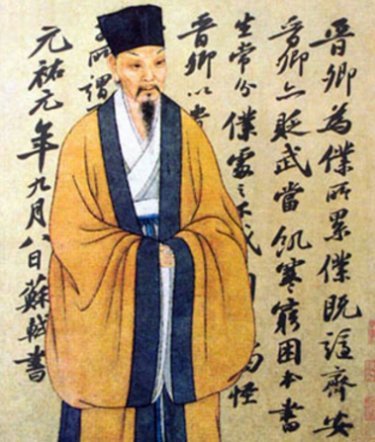 晉卿為僕所累僕既謫齊安
晉卿亦貶武當飢寒窮困本書
生常分僕處之不戚怪
晉卿以貴
所謂
元祐元年九月八日蘇軾書